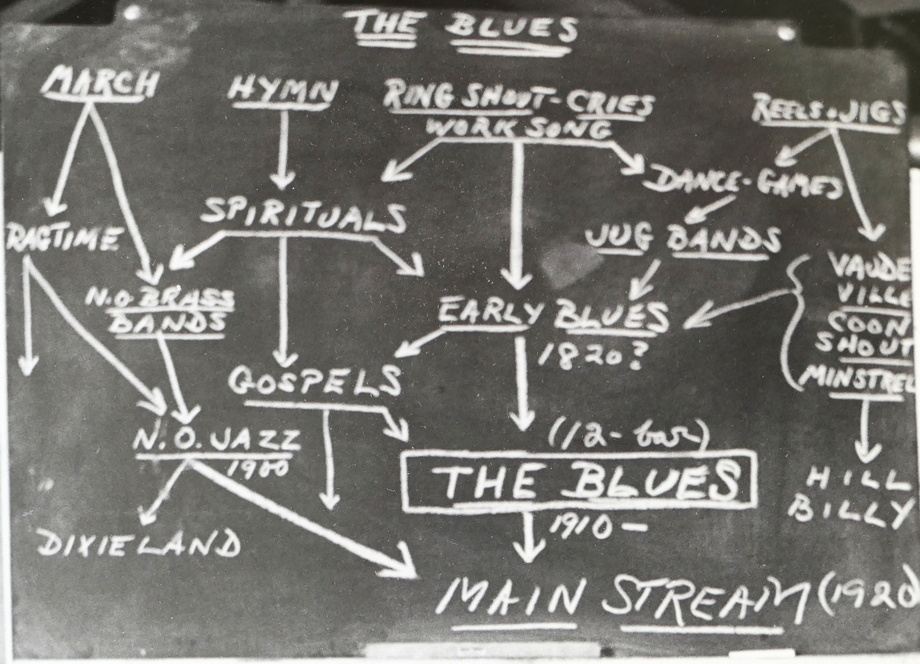 THE BLUES
MARCH
HYMN
RING SHOUT-CRIES
WORK SONG
REELS & JIGS
DANCE-GAMES
SPIRITUALS
RAGTIME
JUG BANDS
N.O BRASS
BANDS
VAUDE
VILLE
COON
SHOUT
MINSTREL
EARLY BLUES
1820?
GOSPELS
N.O. JAZZ
1900
(12-bar)
THE BLUES
1910-
HILL
BILLY
DIXIELAND
MAIN STREAM (1920)